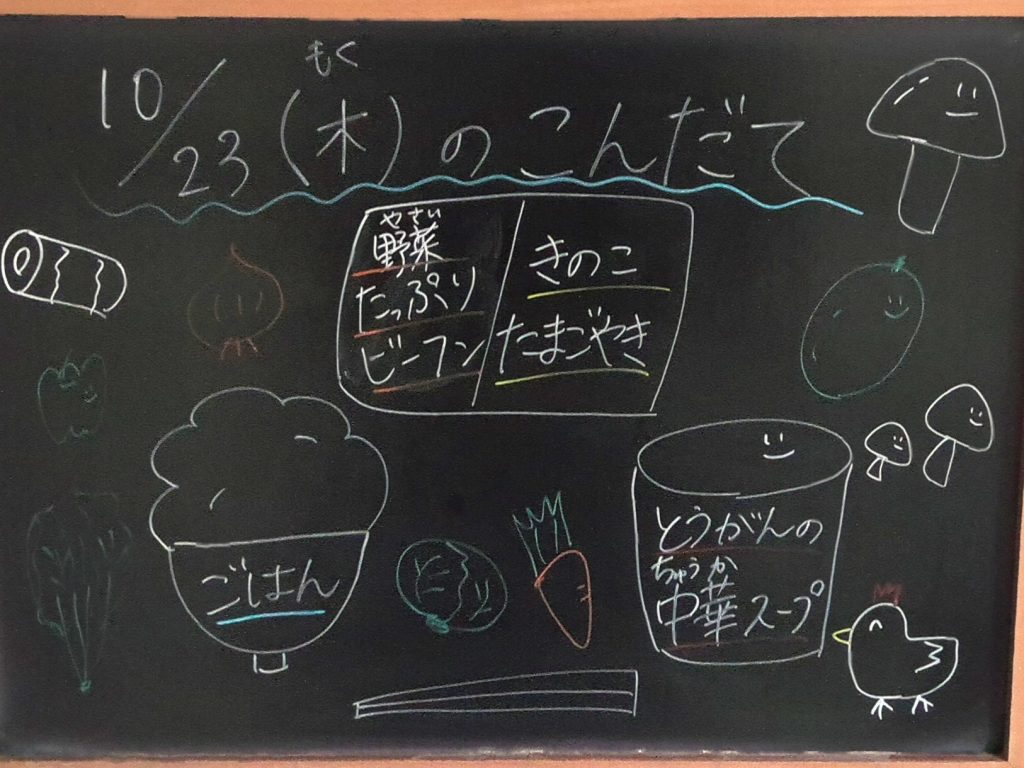 もく
10/23(木)のこんだて
やさい
野菜
たっぷり
ビーフン
きのこ
たまごやき
ごはん
とうがんの
ちゅうか
中華スープ